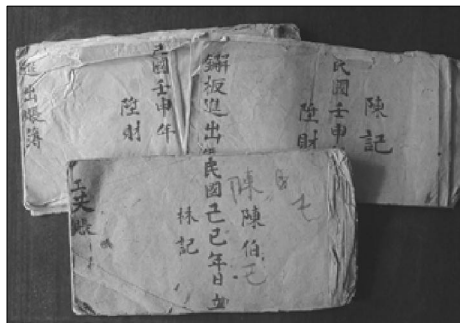 陳記
民國壬申
陞財
板進出
國壬申年
陞財
進出賬簿
陳
陳伯
民國己巳年日立
林記
工夫賬